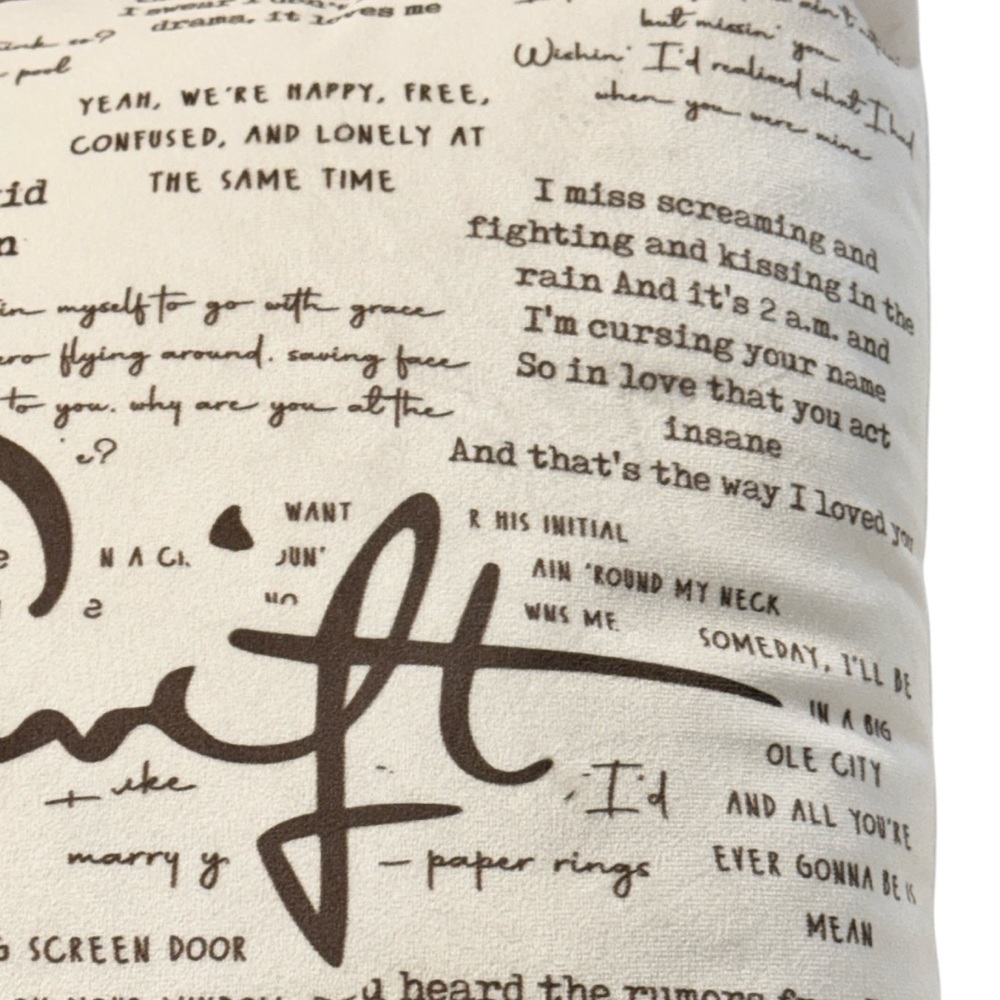 drama, it loves me
pool
YEAH, WE'RE HAPPY, FREE,
CONFUSED, AND LONELY AT
THE SAME TIME
but missin' you
Wishin' I'd realized what I had
when you were mine
I miss screaming and
fighting and kissing in the
rain And it's 2 a.m. and
I'm cursing your name
So in love that you act
insane
And that's the way I loved you
myself to go with grace
flying around. saving face
to you. why are you at the
?
WANT
N A
R HIS INITIAL
AIN 'ROUND MY NECK
WNS ME
Swift
SOMEDAY, I'LL BE
IN A BIG
OLE CITY
AND ALL YOU'RE
EVER GONNA BE IS
MEAN
I'd
marry y
— paper rings
G SCREEN DOOR
heard the rumors